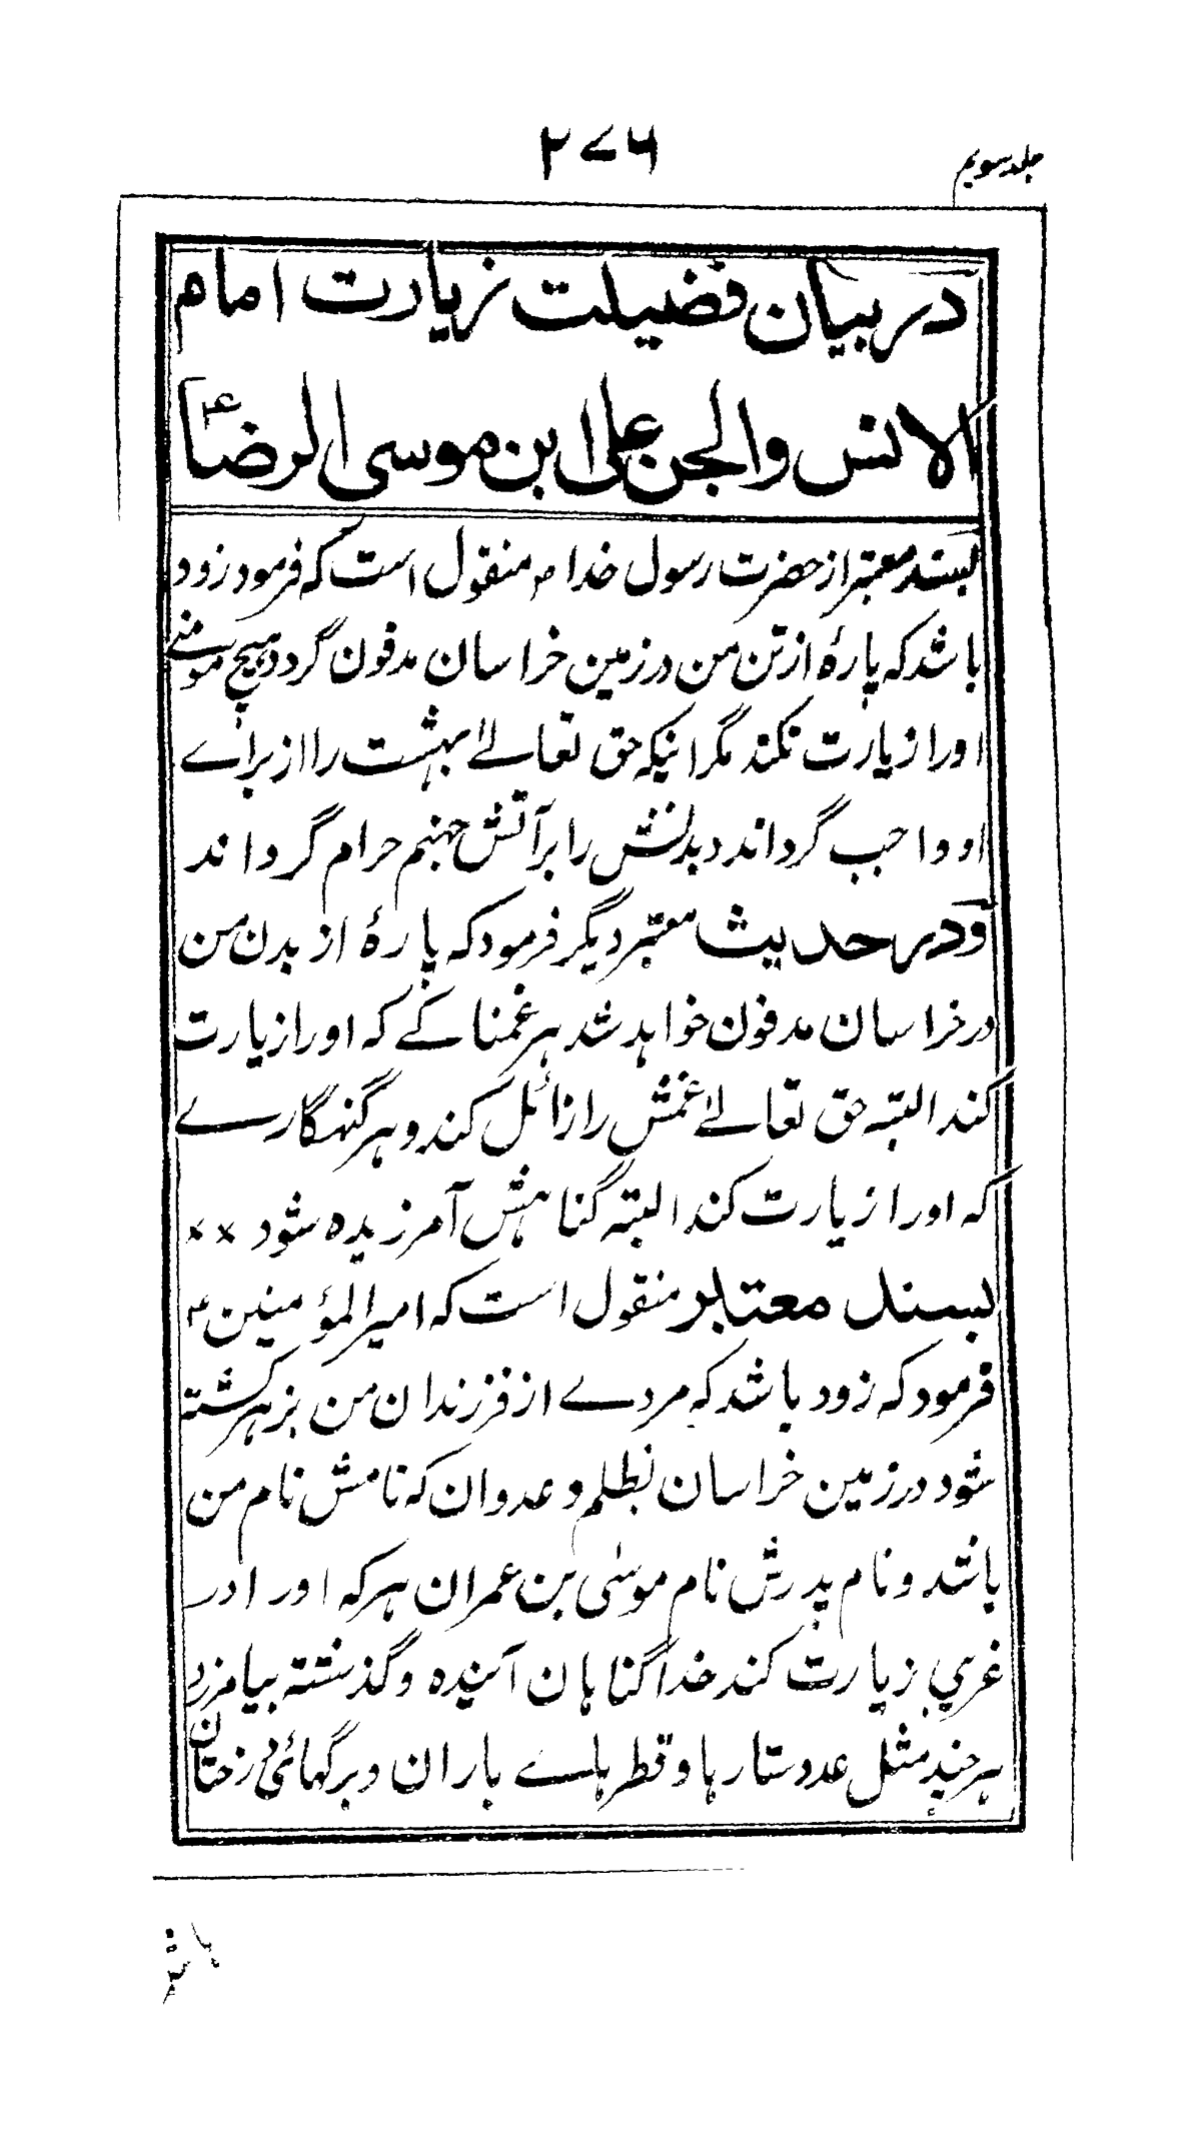 جلد سویم
۲۷۶
در بیان فضیلت زیارت امام
الانس والجن علی ابن موسی الرضاؑ
بسند معتبر از حضرت رسول خدا ص منقول است که فرمود زود
باشد که پارهٔ از تن من در زمین خراسان مدفون گردد هیچ مومنے
اورا زیارت نکند مگر انیکه حق تعالےٰ بهشت را از برائے
او واجب گرداند و بدنش را بر آتش جهنم حرام گرداند
و در حدیث معتبر دیگر فرمود که پارهٔ از بدن من
در خراسان مدفون خواهد شد هر غمناکے که اورا زیارت
کند البته حق تعالےٰ غمش را زائل کند و هر گنهگارے
که اورا زیارت کند البته گناهش آمرزیده شود ××
بسند معتبر منقول است که امیرالمؤمنین ع
فرمود که زود باشد که مردے از فرزندان من بزهر کشته
شود در زمین خراسان بظلم و عدوان که نامش نام من
باشد و نام پدرش نام موسٰی بن عمران هر که اورا در
غربی زیارت کند خدا گناهان آینده و گذشته بیامرزد
هر چند مثل عدد ستارها و قطرهاے باران و برگهائی درختان
باشد